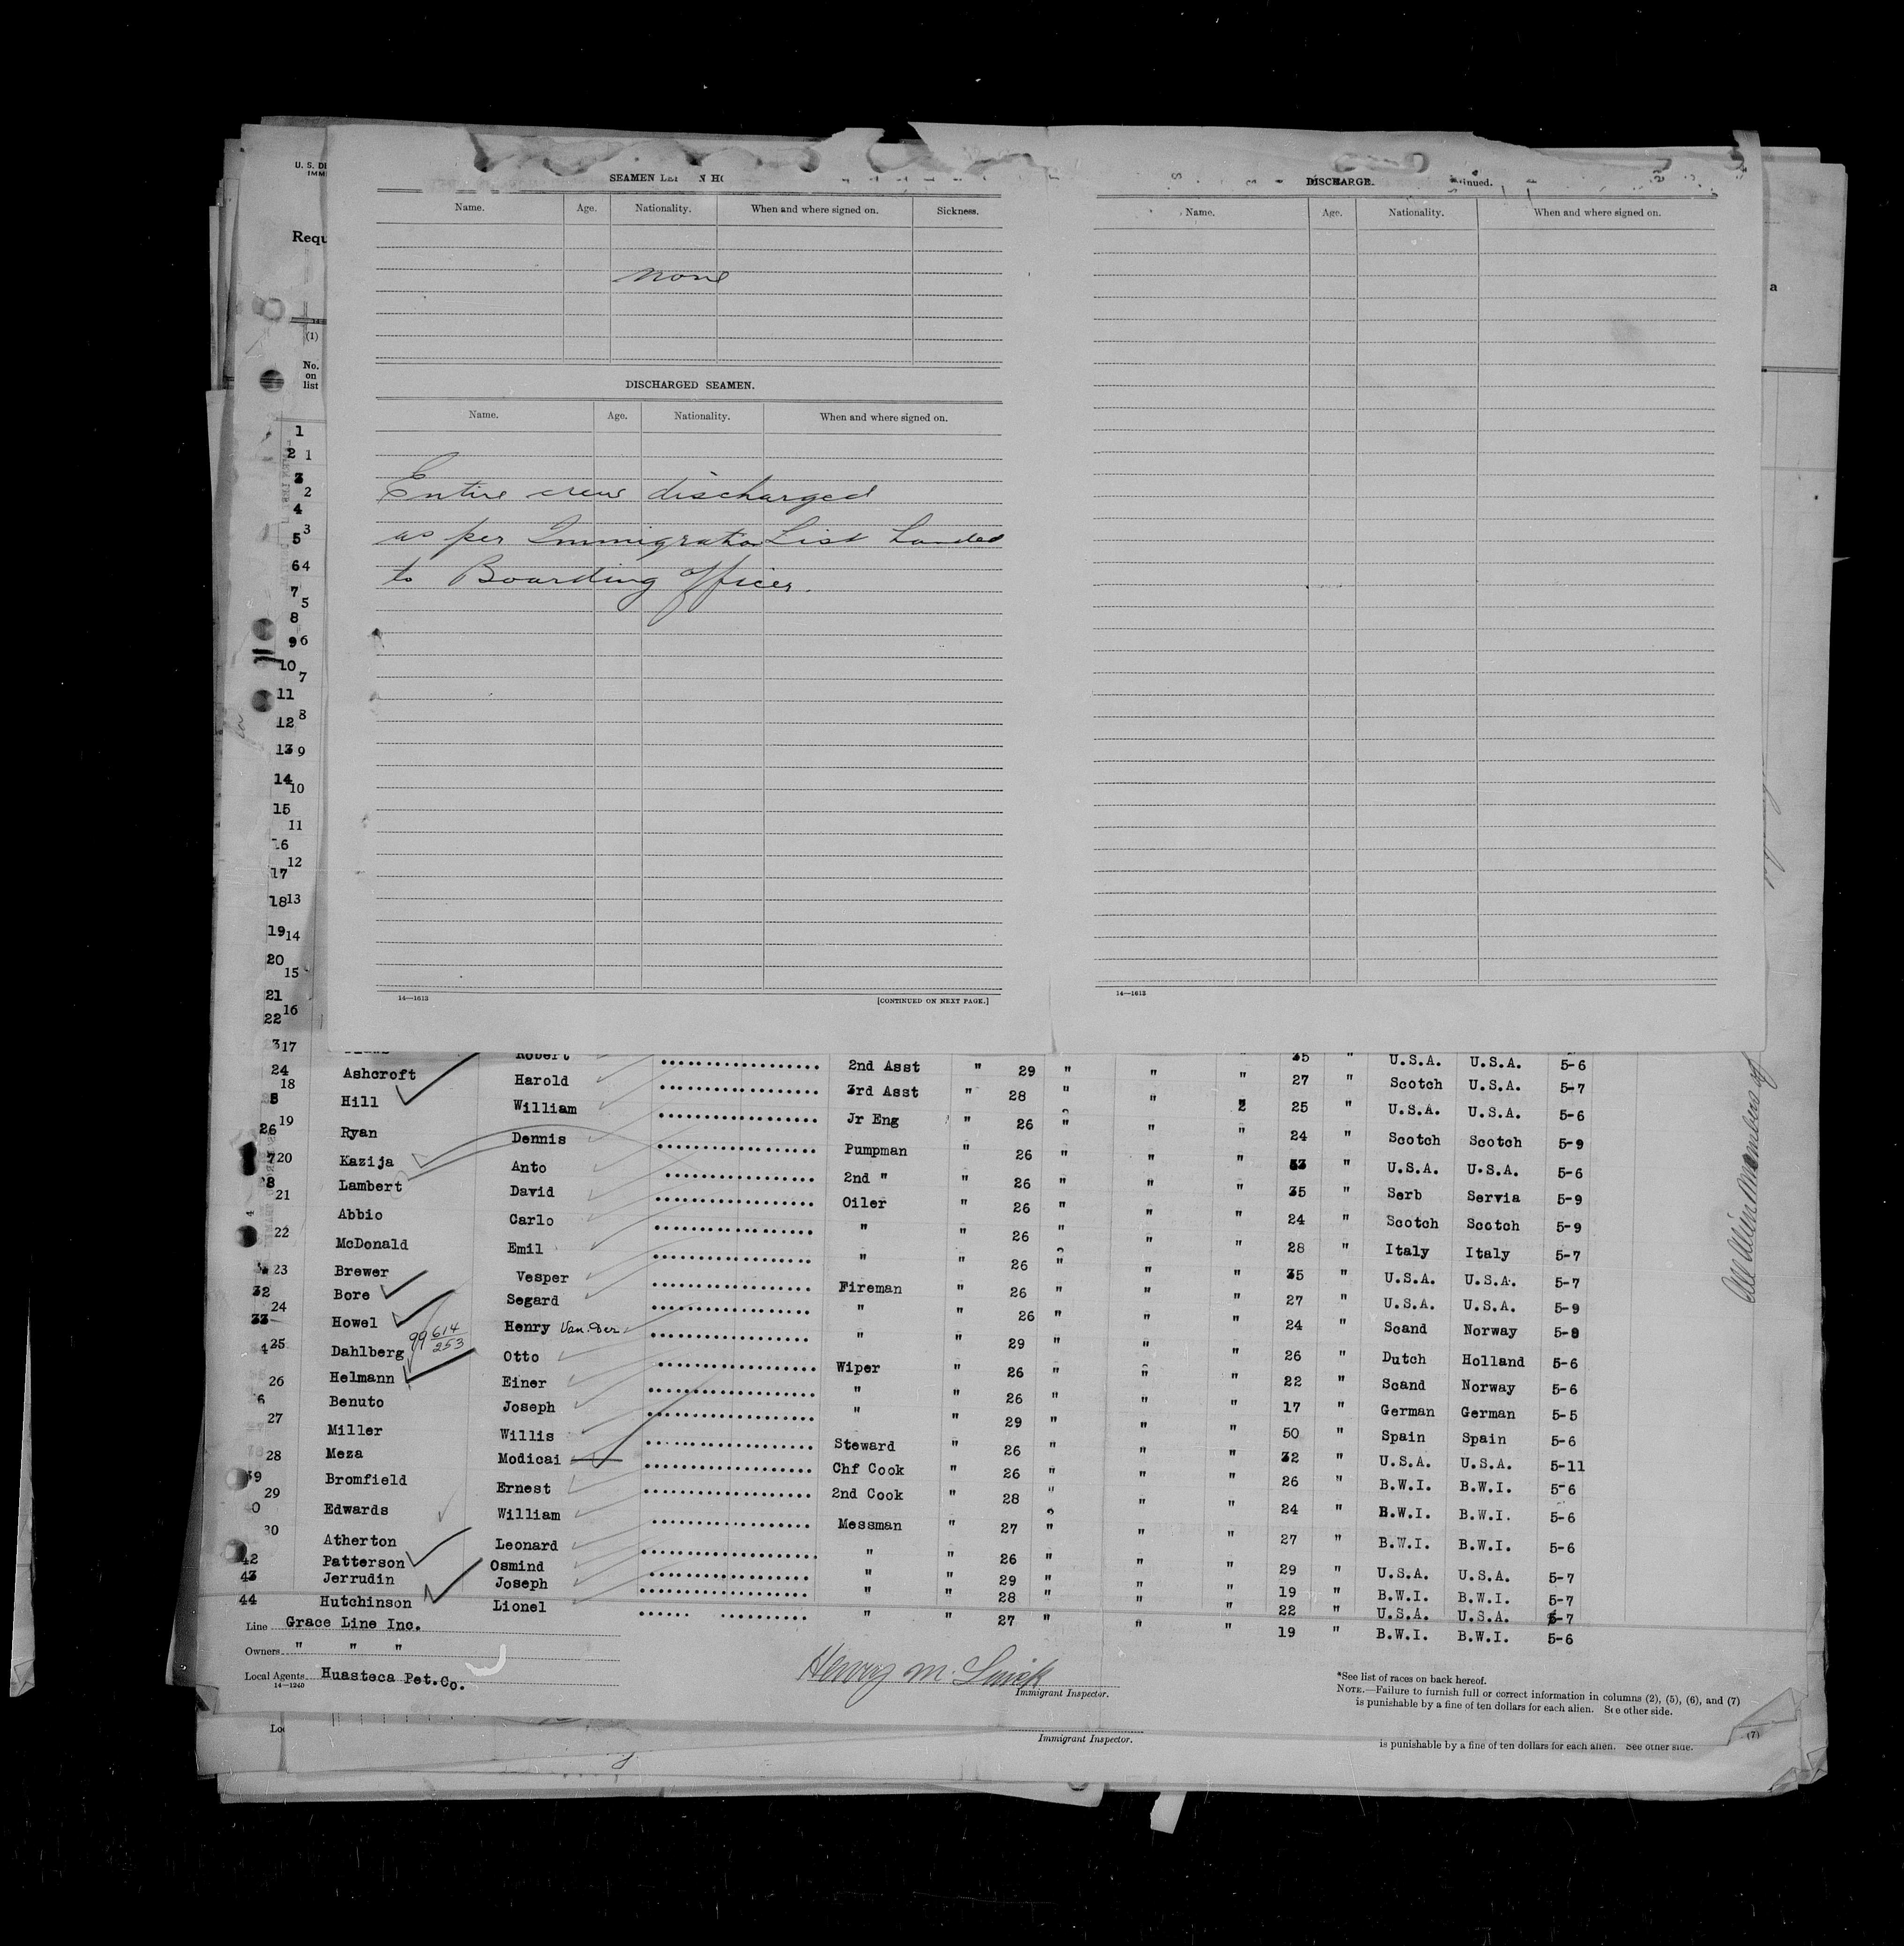 U. S. DE
IMMI
Requ
(1)
No.
on
list
SEAMEN
DISCHARGE.
Name. Age. Nationality. When and where signed on. Sickness.
None
DISCHARGED SEAMEN.
Name. Age. Nationality. When and where signed on.
Entire crew discharged
as per Immigration List handed
to Boarding Officer.
14—1613 [CONTINUED ON NEXT PAGE.]
Name. Age. Nationality. When and where signed on.
14—1613
1
2 1
3
2
4
5 3
6 4
7
5
8
9 6
10
7
11
12 8
13 9
14
10
15
11
16
12
17
18 13
19 14
20
15
21
16
22
17
35 " U.S.A. U.S.A. 5-6
Robert 2nd Asst " 29 " " " 27 " Scotch U.S.A. 5-7
24 Ashcroft Harold 3rd Asst " 28 " " 2 25 " U.S.A. U.S.A. 5-6
18 Hill William Jr Eng " 26 " " " 24 " Scotch Scotch 5-9
19
26 Ryan Dennis Pumpman " 26 " " " 33 " U.S.A. U.S.A. 5-6
20 Kazija Anto 2nd " " 26 " " " 35 " Serb Servia 5-9
Lambert David Oiler " 26 " " " 24 " Scotch Scotch 5-9
21
Abbio Carlo " " 26 " " " 28 " Italy Italy 5-7
22 McDonald Emil " " 26 " " " 35 " U.S.A. U.S.A. 5-7
23 Brewer Vesper Fireman " 26 " " " 27 " U.S.A. U.S.A. 5-9
32 Bore Segard " " 26 " " " 24 " Scand Norway 5-8
24
33 Howel Henry Van Der " " 29 " " " 26 " Dutch Holland 5-6
99 614/253
25 Dahlberg Otto Wiper " 26 " " " 22 " Scand Norway 5-6
26 Helmann Einer " " 26 " " " 17 " German German 5-5
Benuto Joseph " " 29 " " " 50 " Spain Spain 5-6
27
Miller Willis Steward " 26 " " " 32 " U.S.A. U.S.A. 5-11
28 Meza Modicai Chf Cook " 26 " " " 26 " B.W.I. B.W.I. 5-6
Bromfield Ernest 2nd Cook " 28 " " " 24 " B.W.I. B.W.I. 5-6
29
Edwards William Messman " 27 " " " 27 " B.W.I. B.W.I. 5-6
30
Atherton Leonard " " 26 " " " 29 " U.S.A. U.S.A. 5-7
42 Patterson Osmind " " 29 " " " 19 " B.W.I. B.W.I. 5-7
43 Jerrudin Joseph " " 28 " " " 22 " U.S.A. U.S.A. 5-7
44 Hutchinson Lionel " " 27 " " " 19 " B.W.I. B.W.I. 5-6
Line Grace Line Inc.
Owners " " "
Local Agents Huasteca Pet.Co.
14—1240
Immigrant Inspector.
*See list of races on back hereof.
NOTE.—Failure to furnish full or correct information in columns (2), (5), (6), and (7)
is punishable by a fine of ten dollars for each alien. See other side.
Immigrant Inspector.
is punishable by a fine of ten dollars for each alien. See other side.
(7)